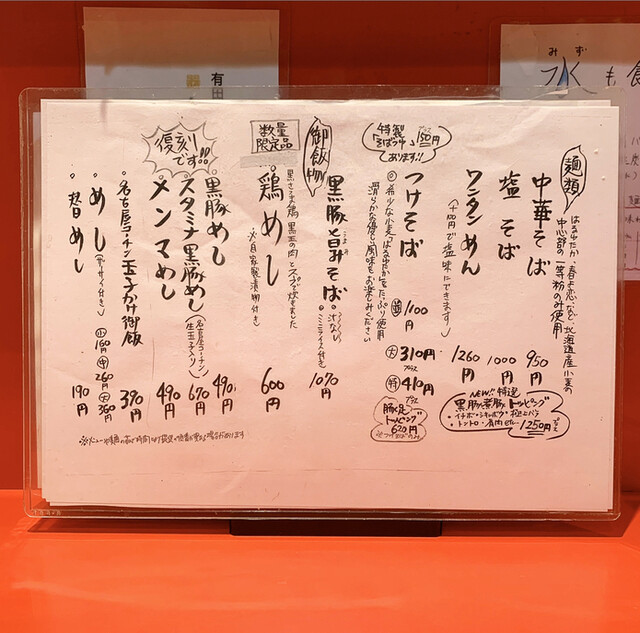 麺類
はるゆたか 春よ恋 など 北海道産小麦の
中心部の一等粉のみ使用
中華そば 950円
塩そば 1000円
ワンタンめん 1260円
(+100円で塩味にできます)
NEW!! 特選
黒豚煮豚トッピング
トントロ・肩肉 etc… プラス1250円
特製
そばつゆ プラス150円
あります!!
つけそば 並 1100円
大 プラス310円
特 プラス410円
◎希少な小麦"はるゆたか"をたっぷり使用
滑らかな喉ごし風味をお楽しみください
豚足
トッピング
620円
黒豚旨みそば 1070円
汁なし
ミニライス付き
御飯物
数量
限定品
鶏めし 600円
黒さつま鶏 黒王の肉とスープで炊きました
自家製漬物付き
復刻
です!!
黒豚めし 490円
スタミナ黒豚めし 670円
(名古屋コーチン
生玉子入り)
メンマめし 490円
名古屋コーチン玉子かけ御飯 390円
めし (ザーサイ付き) 小160円 中260円 大360円
替めし 190円
水も
みず
有田